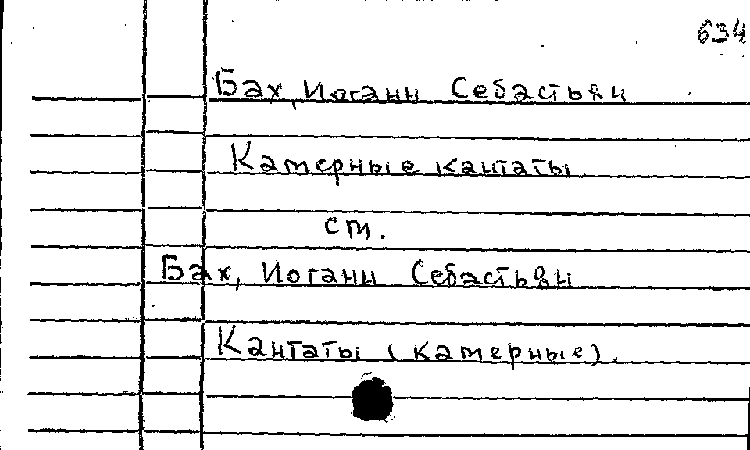 634
Бах, Иоганн Себастьян
Камерные кантаты
см.
Бах, Иоганн Себастьян
Кантаты (камерные).